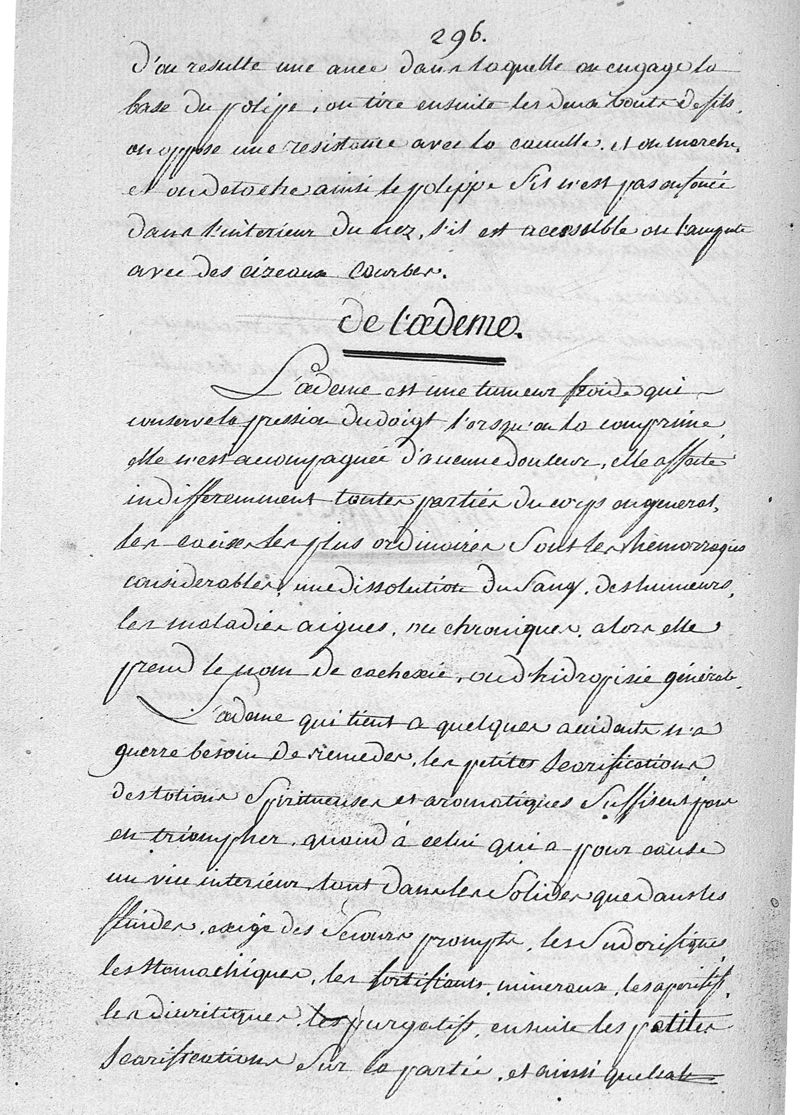 296.
d'ou resulte une ance dans laquelle on engage la
base du polipe, on tire ensuite les deux bouts de fils,
on oppose une resistance avec la canulle, et on marche,
et on detache ainsi le polippe s'il n'est pas enfoncé
dans l'interieur du nez, s'il est accessible on l'ampute
avec des cizeaux courbes.
de l'œdeme.
L'œdeme est une tumeur froide qui
conserve la pression du doigt lorsqu'on la comprime,
elle n'est acompagnée d'aucune douleur, elle affecte
indifferemment toutes parties du corps en general,
les causes les plus ordinaires sont les hémorragies
considerables, une dissolution du sang, des humeurs,
les maladies aigues, ou chroniques, alors elle
prend le nom de cachexie, ou d'hidropisie générale.
L'œdeme qui tient a quelques accidents n'a
guerre besoin de remedes, les petites scarifications,
des lotions spiritueuses et aromatiques suffisent pour
en triompher, quand à celui qui a pour cause
un vice interieur, tant dans les solides que dans les
fluides, exige des secours prompts, les sudorifiques,
les stomachiques, les fortifiants, mineraux, les aperitifs,
les diuretiques, les purgatifs, ensuite les petites
scarifications sur la partie, et ainsi que